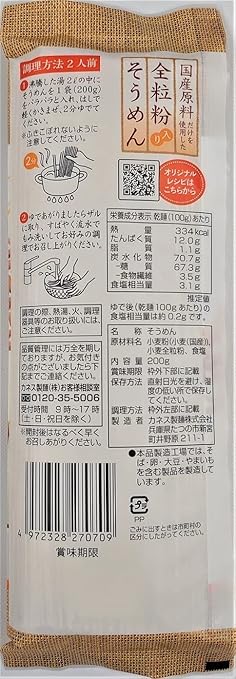 国産原料だけを使用した
全粒粉入り
そうめん
調理方法2人前
1 沸騰した湯2ℓの中に
そうめんを1袋(200g)
をパラパラと入れ、はしで
軽くかきまぜ、2分ゆで
てください。
※ふきこぼれないように
注意してください。
2分
2 ゆであがりましたらザル
に取り、すばやく流水で
もみ洗いしてお好みの調
理でお召し上がりください。
調理の際、熱湯、火、調理
器具等のお取り扱いには、
ご注意ください。
品質管理には万全を期し
ておりますが、お気付き
の点がございましたら下
記までご連絡ください。
カネス製麺(株)お客様相談室
0120-35-5006
受付時間 9時〜17時
(土・日・祝日を除く)
※開封後はなるべく早く
お召しあがりください。
4 972328 270709
賞味期限
オリジナル
レシピは
こちらから
栄養成分表示 乾麺(100g)あたり
熱量 334kcal
たんぱく質 12.0g
脂質 1.1g
炭水化物 70.7g
−糖質 67.3g
−食物繊維 3.5g
食塩相当量 3.1g
推定値
ゆで後(乾麺100gあたり)の
食塩相当量は約0.2gです。
名称 そうめん
原材料名 小麦粉(小麦(国産))、
小麦全粒粉、食塩
内容量 200g
賞味期限 枠外下部に記載
保存方法 直射日光を避け、湿
度の低い所で保存し
てください。
調理方法 枠外左部に記載
製造者 カネス製麺株式会社
兵庫県たつの市新宮
町井野原211-1
●本品製造工場では、そ
ば・卵・大豆・やまいも
を含む製品を製造して
います。
プラ
PP
ごみに出すときは市町村の
区分にしたがってください。